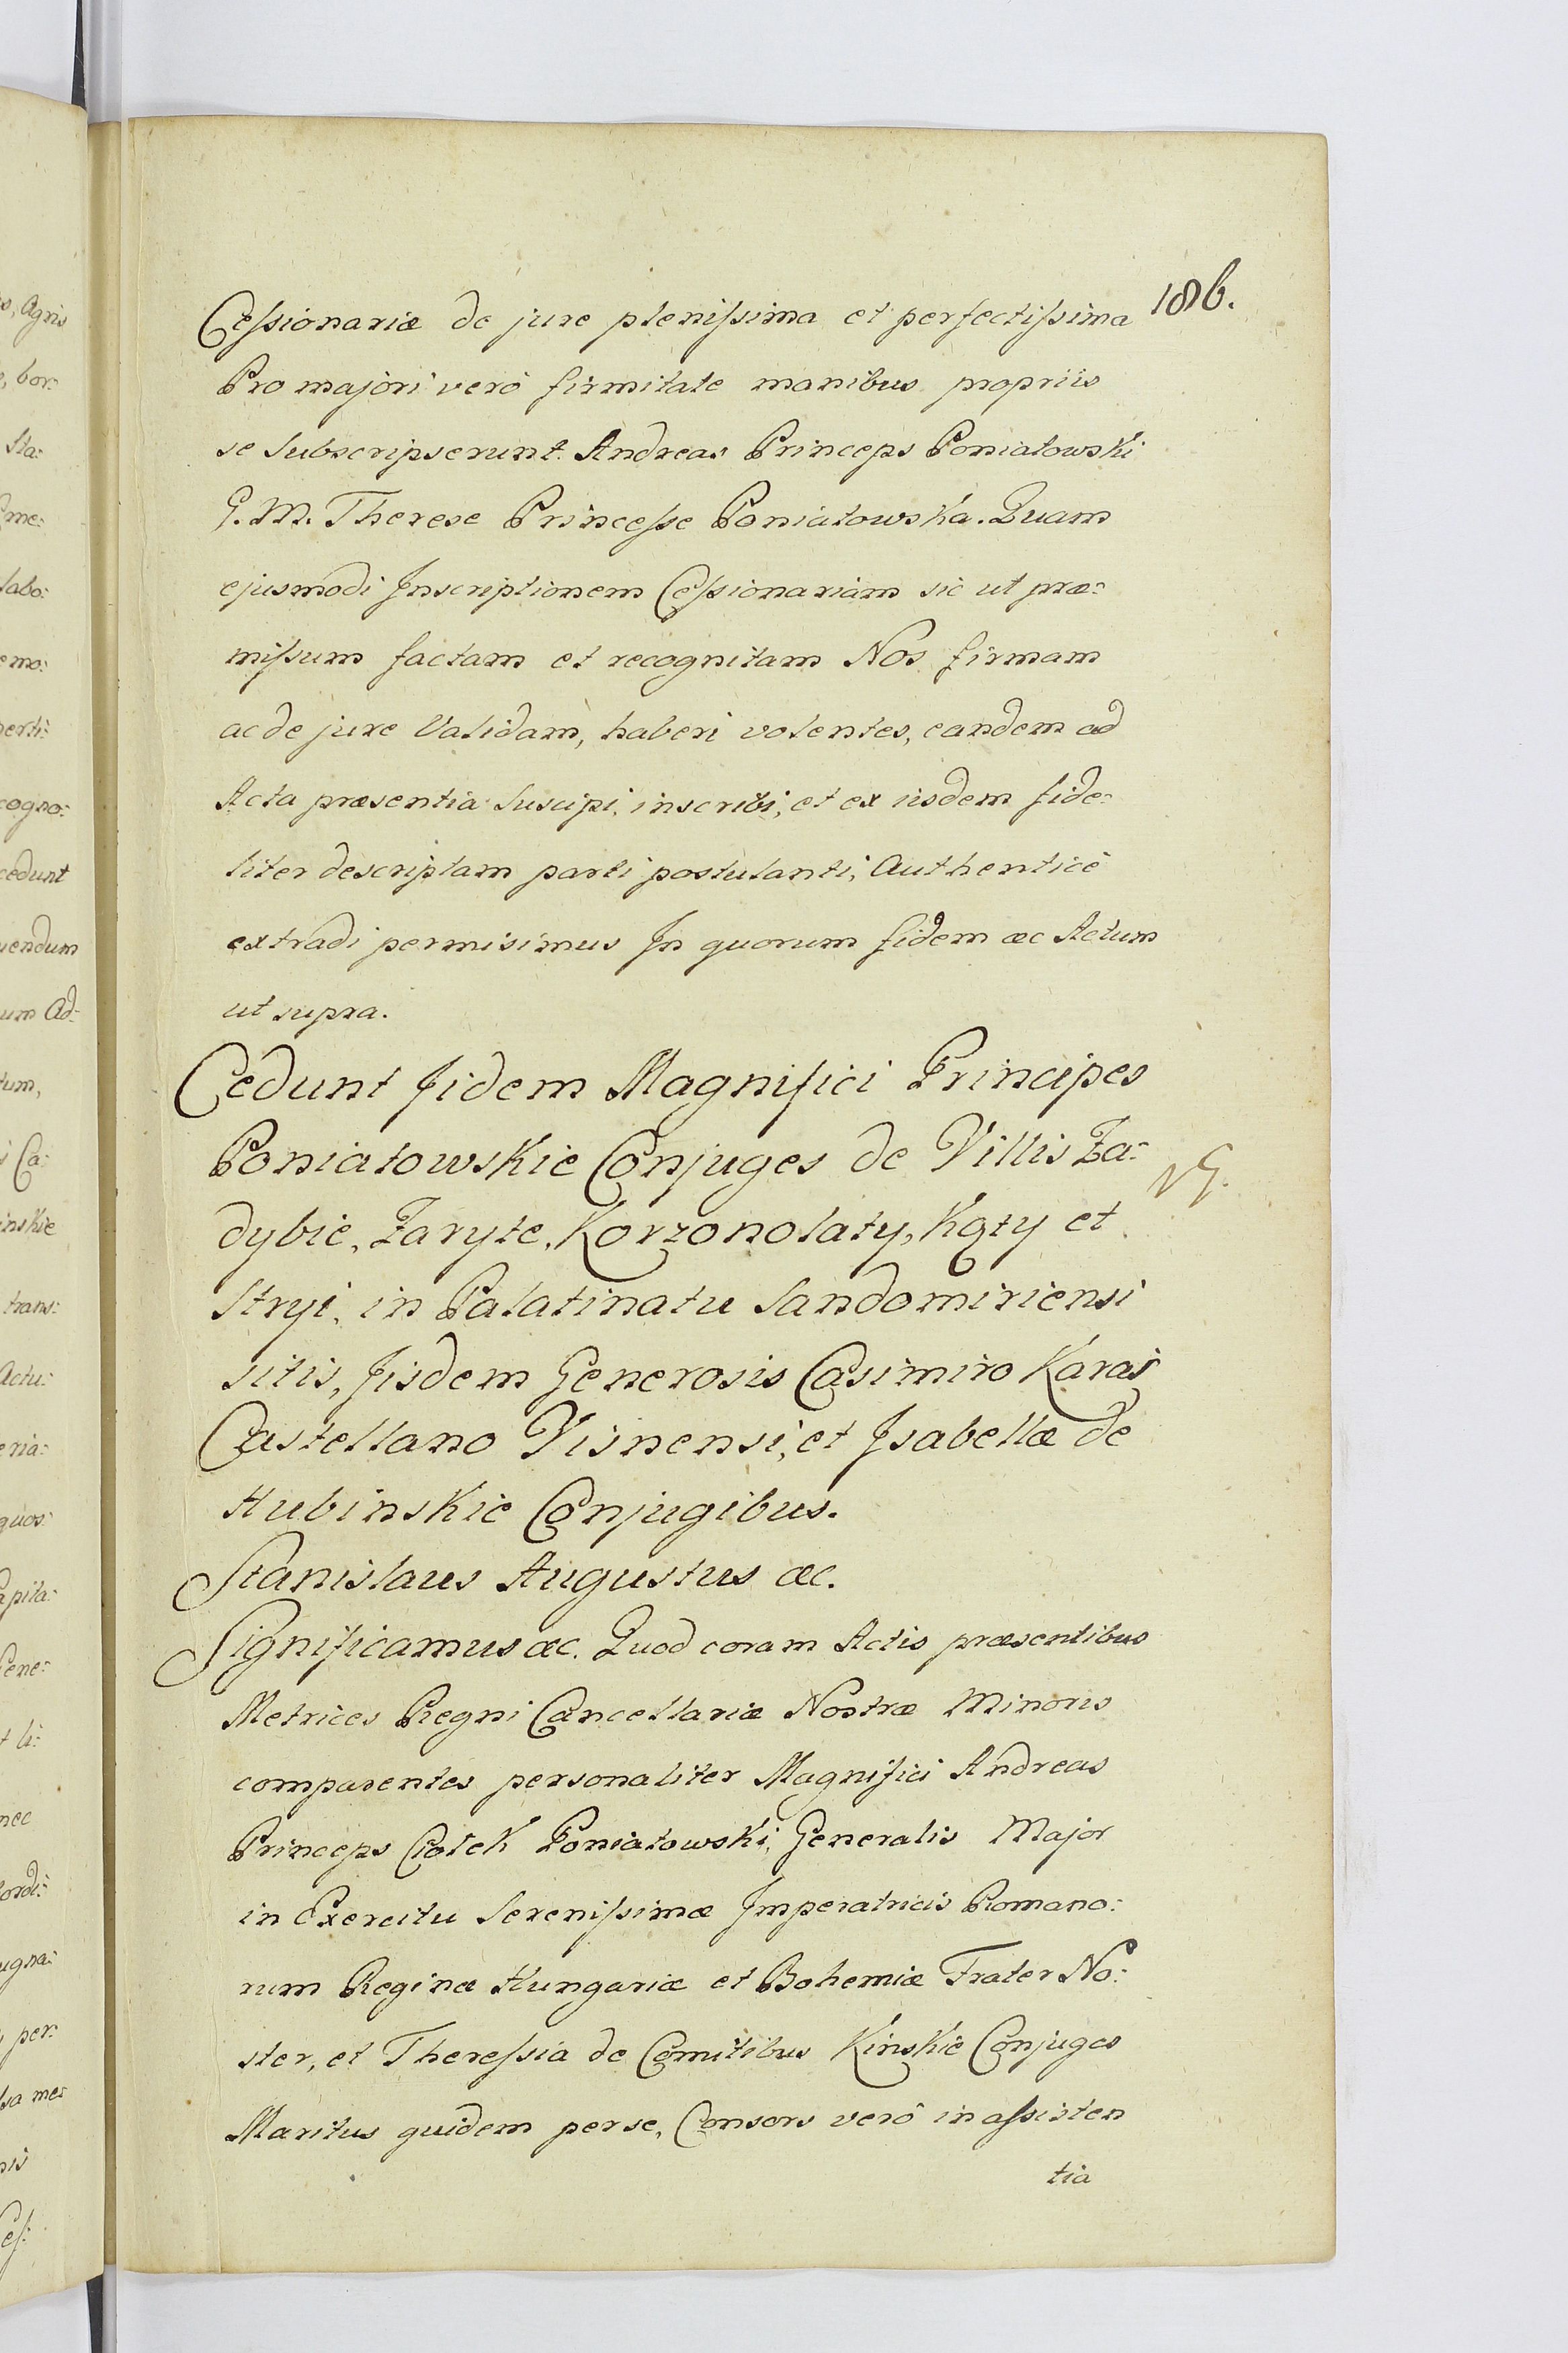 186.
Cessionariæ de jure plenissima et perfectissima
Pro majori verò firmitate manibus propriis
se subscripserunt. Andreas Princeps Poniatowski
G. M. Therese Princesse Poniatowska. Quam
ejusmodi Inscriptionem Cessionariam sic ut præ:
missum factam et recognitam Nos firmam
ac de jure Validam, haberi volentes, eandem ad
Acta præsentia suscipi, inscribi, et ex iisdem fide:
liter descriptam parti postulanti, Authenticè
extradi permisimus In quorum fidem æc Actum
ut supra.
Cedunt Jidem Magnifici Principes
Poniatowskie Conjuges de Villis Za:
dybie, Zaryte, Korzonolaty, Kąty et
Stryi, in Palatinatu Sandomiriensi
sitis, Jisdem Generosis Casimiro Karaś
Castellano Visnensi, et Isabellæ de
Hubinskie Conjugibus.
Stanislaus Augustus æc.
Significamus æc. Quod coram Actis præsentibus
Metrices Regni Cancellariæ Nostræ Minoris
comparentes personaliter Magnifici Andreas
Princeps Ciołek Poniatowski, Generalis Major
in Exercitu Serenissimæ Imperatricis Romano:
rum Reginæ Hungariæ et Bohemiæ Frater No:
ster, et Theressia de Comitibus Kinskie Conjuges
Maritus quidem per se, Consors verò in assisten
tia